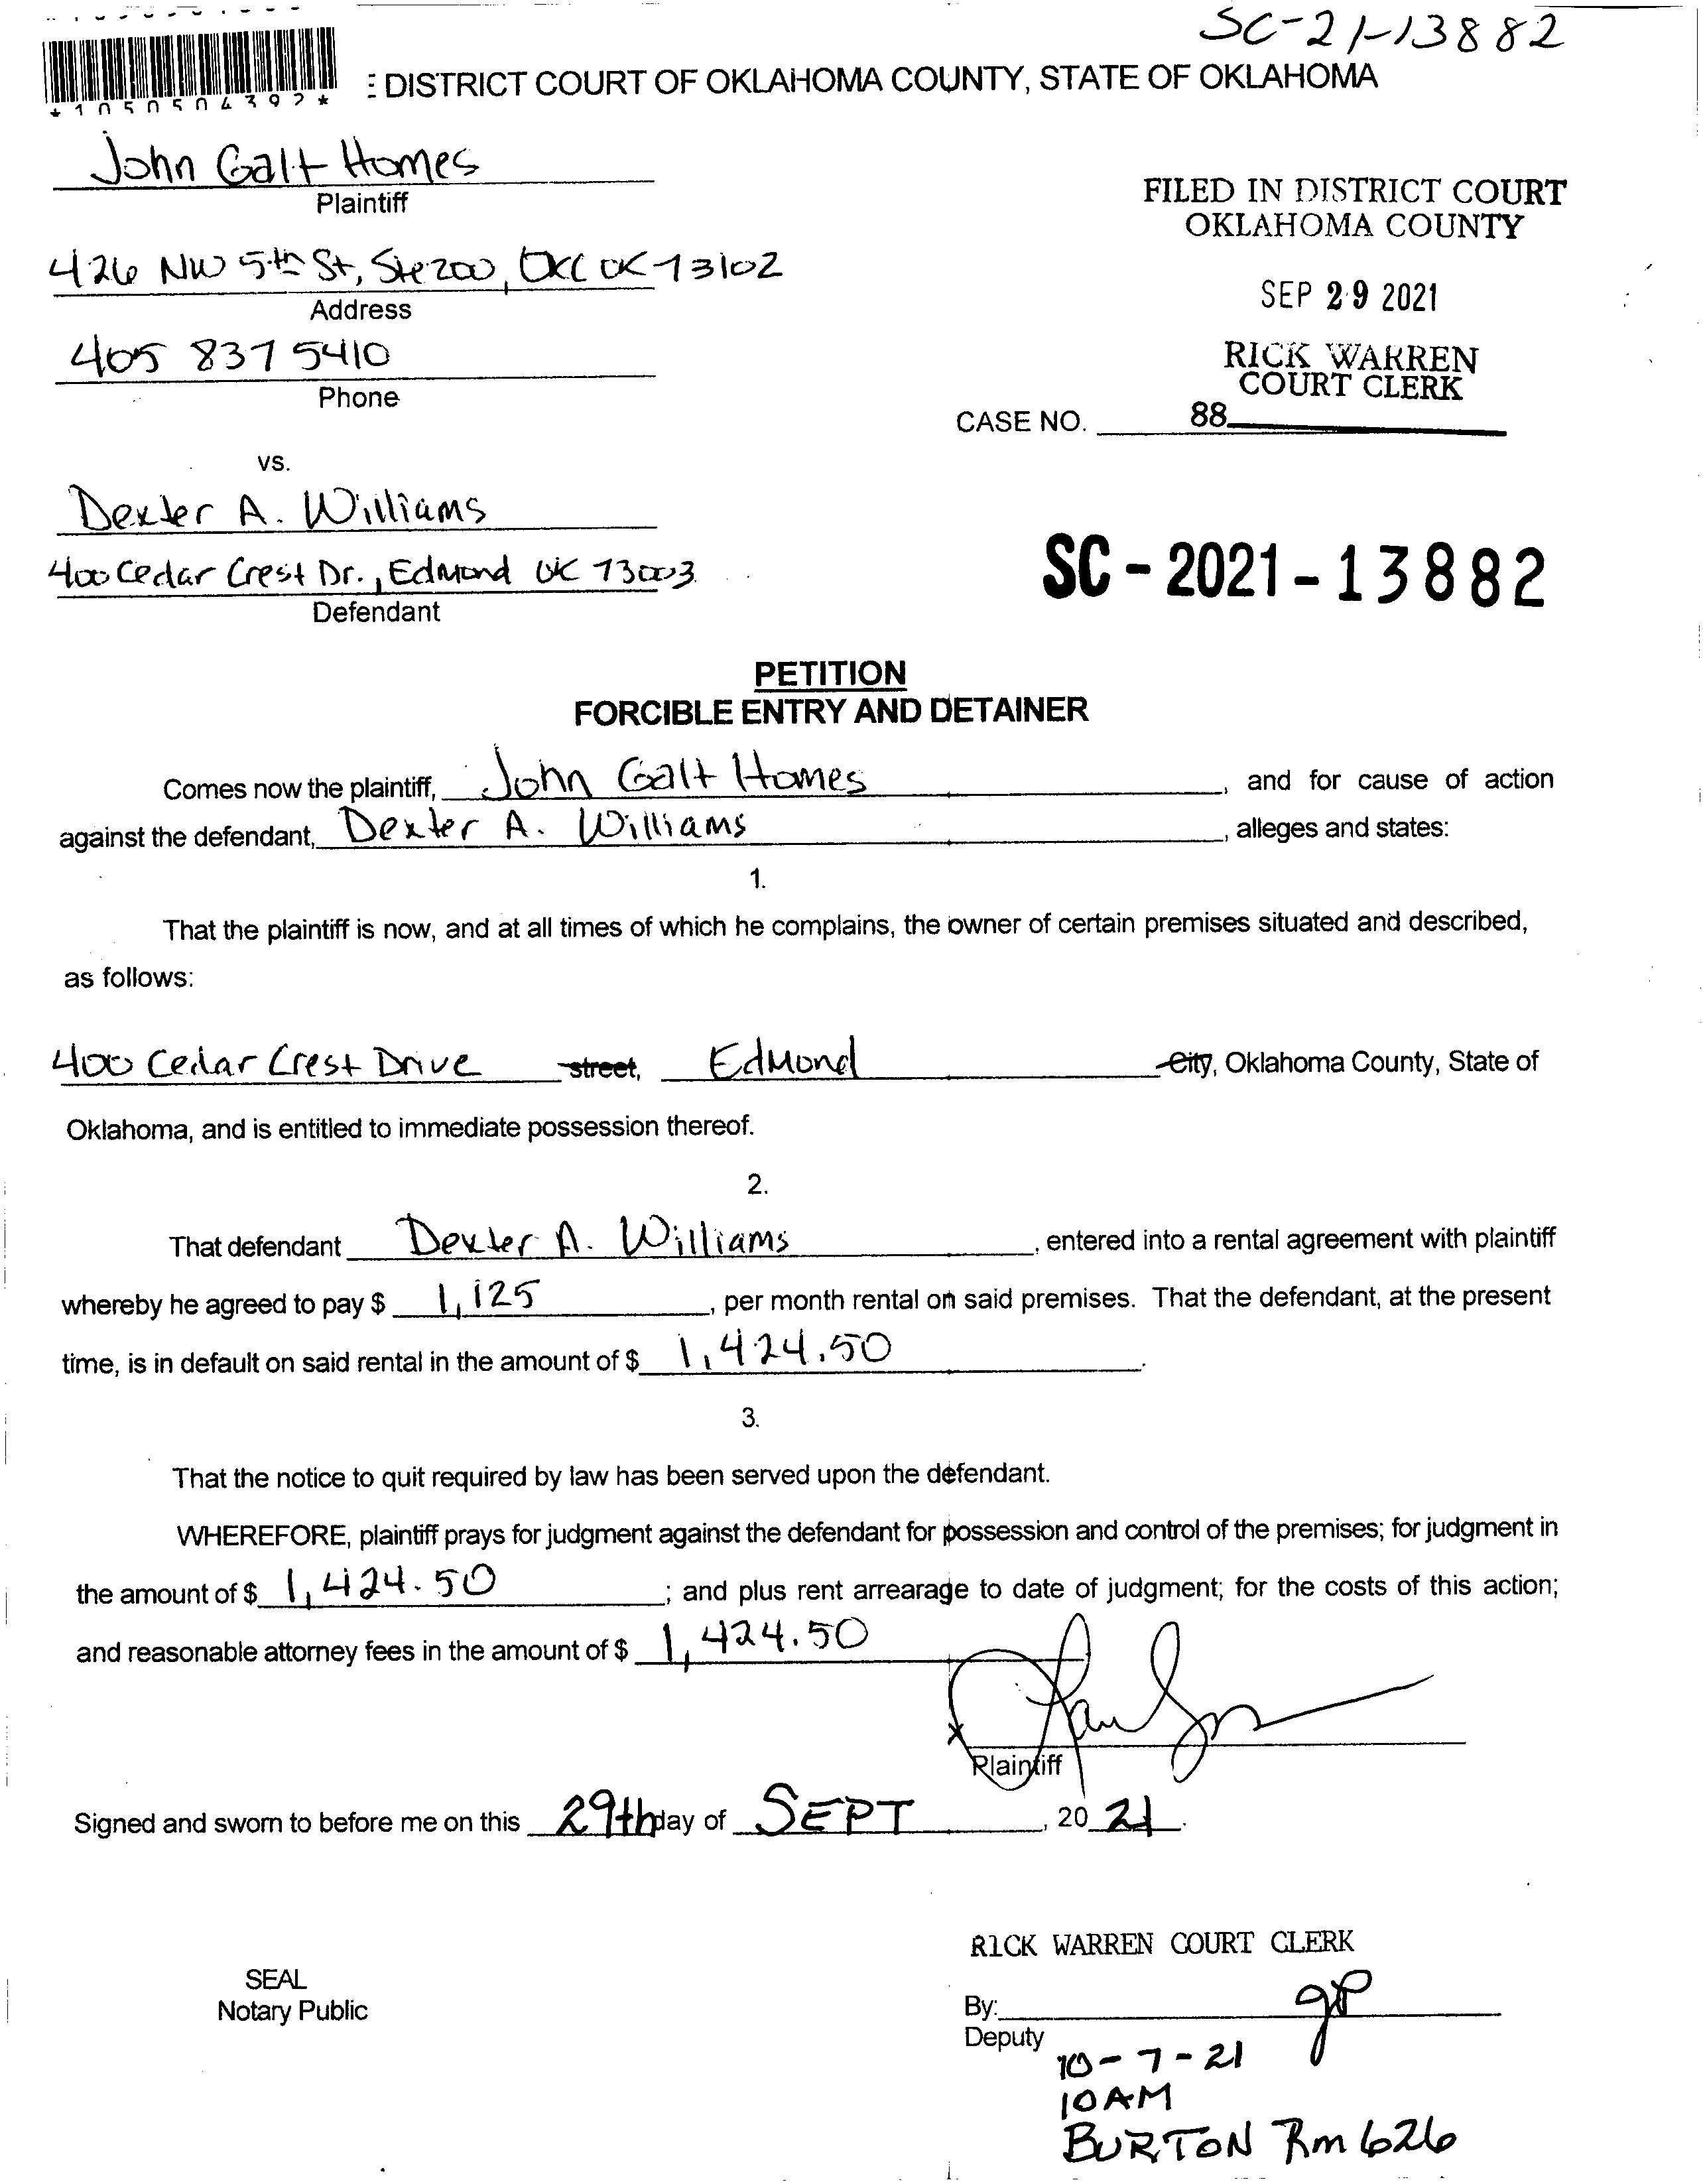 SC-21-13882
*1050504392*
: DISTRICT COURT OF OKLAHOMA COUNTY, STATE OF OKLAHOMA
John Galt Homes
Plaintiff
FILED IN DISTRICT COURT
OKLAHOMA COUNTY
426 NW 5th St, Ste 200, OKC OK 73102
Address
SEP 29 2021
405 837 5410
Phone
RICK WARREN
COURT CLERK
CASE NO. 88
vs.
Dexter A. Williams
400 Cedar Crest Dr., Edmond OK 73003
Defendant
SC-2021-13882
PETITION
FORCIBLE ENTRY AND DETAINER
Comes now the plaintiff, John Galt Homes, and for cause of action
against the defendant, Dexter A. Williams, alleges and states:
1.
That the plaintiff is now, and at all times of which he complains, the owner of certain premises situated and described,
as follows:
400 Cedar Crest Drive street, Edmond City, Oklahoma County, State of
Oklahoma, and is entitled to immediate possession thereof.
2.
That defendant Dexter A. Williams, entered into a rental agreement with plaintiff
whereby he agreed to pay $ 1,125, per month rental on said premises. That the defendant, at the present
time, is in default on said rental in the amount of $ 1,424.50.
3.
That the notice to quit required by law has been served upon the defendant.
WHEREFORE, plaintiff prays for judgment against the defendant for possession and control of the premises; for judgment in
the amount of $ 1,424.50; and plus rent arrearage to date of judgment; for the costs of this action;
and reasonable attorney fees in the amount of $ 1,424.50
x
Plaintiff
Signed and sworn to before me on this 29th day of SEPT, 20 21.
RICK WARREN COURT CLERK
SEAL
Notary Public
By: gP
Deputy
10-7-21
10AM
BURTON Rm 626